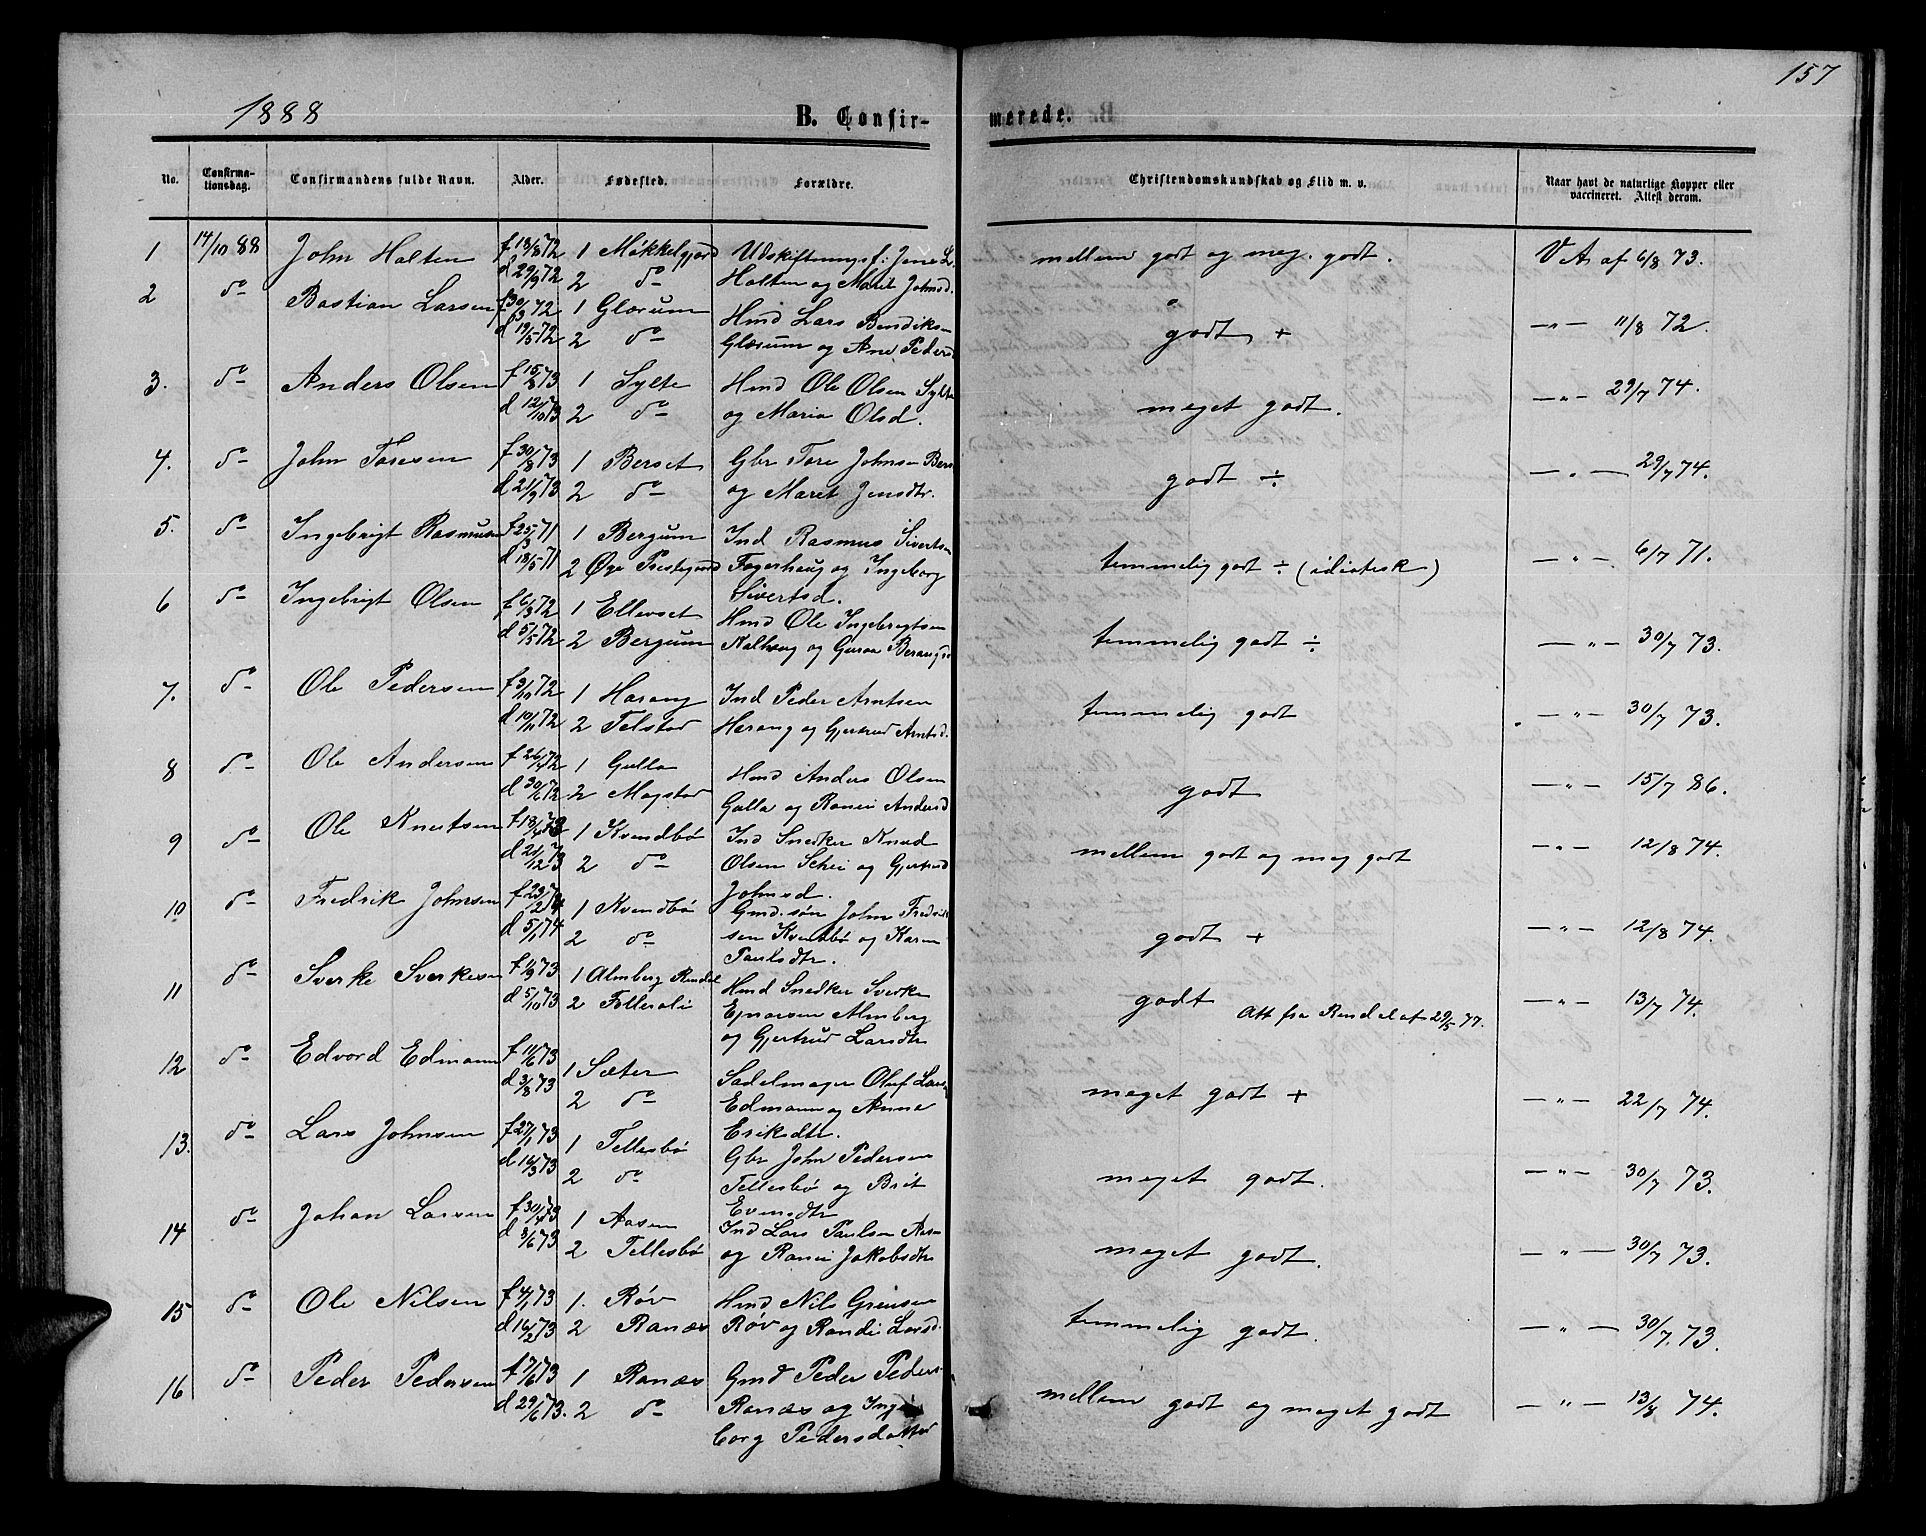 157
1888 B. Confir- merede.
No. Confirma-tionsdag. Confirmandens fulde Navn. Alder. Fødested. Forældre. Christendomskundskab og Flid m. v. Naar havt de naturlige Kopper eller vaccineret. Attest derom.
1 14/10 88 John Halten f 13/8 72 1 Møkkelgjerd Udskiftningsf: Jens L. mellem godt og meg. godt. V. A. af 6/8 73.
d 29/9 72 2 do Halten og Marit Johnsd.
2 do Bastian Larsen f 30/3 72 1 Glærum Hmd Lars Bendiks- godt + —"— 11/8 72.
d 19/5 72 2 do Glærum og Ane Pedersd
3. do Anders Olsen f 15/8 73 1 Sylte Hmd Ole Olsen Sylte meget godt. —"— 29/7 74.
d 12/10 73 2 do og Maria Olsd.
4. do John Toresen f 30/8 73 1 Berset Gbr Tore Johnsen Bers godt ÷ —"— 29/7 74.
d 21/9 73 2 do og Maret Jensdtr.
5. do Ingebrigt Rasmusen f 25/3 71 1 Bergum Ind Rasmus Sivertsen temmelig godt ÷ (idiotisk) —"— 6/7 71.
d 18/5 71 2 Øye Prestegaard Fagerhaug og Ingeborg
Sivertsd.
6 do Ingebrigt Olsen f 6/3 72 1 Ellevset Hmd Ole Ingebrigtsen temmelig godt ÷ —"— 30/7 73.
d 5/5 72 2 Bergum Nalhaug og Guroa
7. do Ole Pedersen f 3/10 72 1 Harang Ind Peder Arntsen temmelig godt —"— 30/7 73.
d 10/11 72 2 Telstad Harang og Gjertrud Arntsd.
8 do Ole Andersen f 26/4 72 1 Gulla Hmd Anders Olsen godt —"— 15/7 86.
d 30/6 72 2 Mogstad Gulla og Ranei Andersd
9 do Ole Knutsen f 18/4 73 1 Kvendbø Ind Snedker Knud mellem godt og meg godt —"— 12/8 74.
d 21/12 73 2 do Olsen Schei og Gjertrud
Johnsd.
10 do Fredrik Johnsen f 1 Kvendbø Gmd. søn John Fredrik godt + —"— 12/8 74.
d 5/1 74 2 do sen Kvendbø og Karen
Paulsdtr.
11 do Sverke Sverkesen f 11/9 73 1 Almberg Rindal Hmd Snedker Sverke godt —"— 13/7 74.
d 5/10 73 2 Follesøli Ejnarsen Almberg Att fra Rendal af 29/5 77.
og Gjertrud Larsdtr
12 do Edvard Edmann f 11/6 73 1 Sæter Sadelmager Oluf Lars meget godt + —"— 22/7 74.
d 3/8 73 2 do Edmann og Anne
Eriksdtr.
13. do Lars Johnsen f 27/1 73 1 Tellesbø Gbr John Pedersen meget godt. —"— 30/7 73.
d 16/3 73 2 do Tellesbø og Brit
Evensdtr
14 do Johan Larsen f 30/4 73 1 Aasen Ind Lars Paulsen Aas- meget godt. —"— 30/7 73.
d 3/6 73 2 Tellesbø og Ranei Jakobsdtr
15 do Ole Nilsen f 4/1 73 1. Røv Hmd Nils Greiersen temmelig godt. —"— 30/7. 73.
d 16/2 73 2 Ranæs Røv og Randi Larsd.
16 do Peder Pedersen f 7/6 73 1 Ranæs Gmd Peder Peders. mellem godt og meget godt —"— 13/8 74.
d 29/6 73. 2 do Ranæs og Inge
borg Pedersdatter